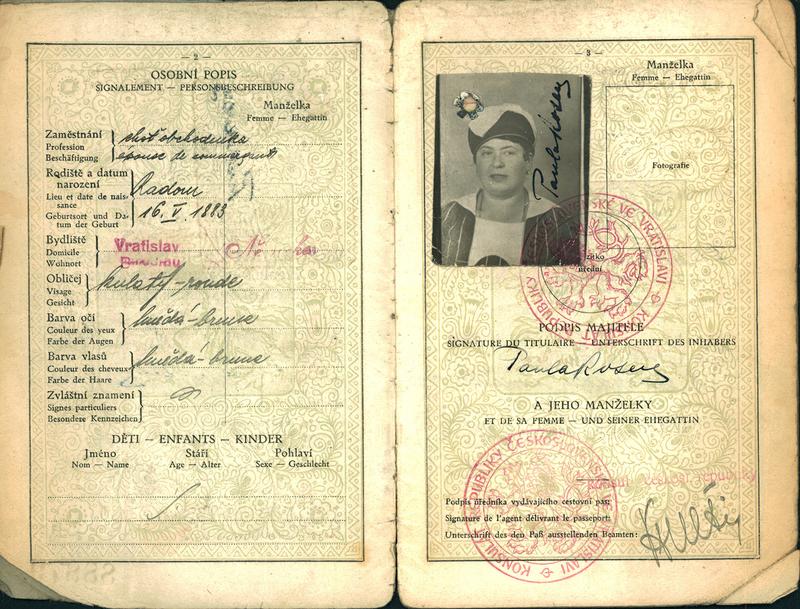 — 2 —
OSOBNÍ POPIS
SIGNALEMENT — PERSONSBESCHREIBUNG
Manželka
Femme — Ehegattin
Zaměstnání
Profession
Beschäftigung
choť obchodníka
épouse de commerçant
Rodiště a datum
narození
Lieu et date de nais-
sance
Geburtsort und Da-
tum der Geburt
Radom
16. V. 1883
Bydliště
Domicile
Wohnort
Vratislav
Breslau
Obličej
Visage
Gesicht
kulatý - ronde
Barva očí
Couleur des yeux
Farbe der Augen
hnědá - brune
Barva vlasů
Couleur des cheveux
Farbe der Haare
hnědá - brune
Zvláštní znamení
Signes particuliers
Besondere Kennzeichen
DĚTI — ENFANTS — KINDER
Jméno Stáří Pohlaví
Nom — Name Age — Alter Sexe — Geschlecht
— 3 —
Manželka
Femme — Ehegattin
Fotografie
Paula Rosen
PODPIS MAJITELE
SIGNATURE DU TITULAIRE — UNTERSCHRIFT DES INHABERS
Paula Rosen
A JEHO MANŽELKY
ET DE SA FEMME — UND SEINER EHEGATTIN
KONSULÁT REPUBLIKY ČESKOSLOVENSKÉ VE VRATISLAVI
Podpis úředníka vydávajícího cestovní pas:
Signature de l'agent délivrant le passeport:
Unterschrift des den Paß ausstellenden Beamten: